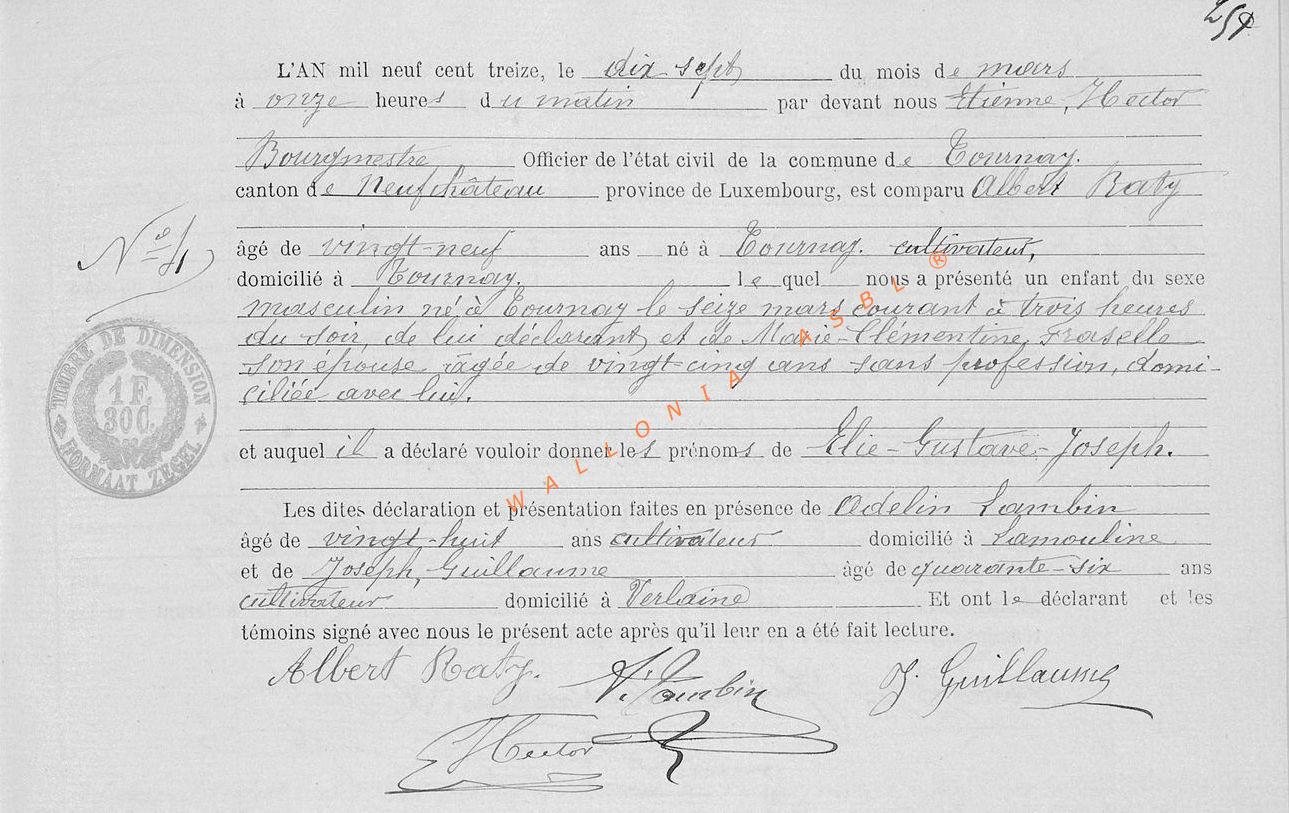 L'AN mil neuf cent treize, le dix sept du mois de mars
à onze heures du matin par devant nous Etienne, Hector
Bourgmestre Officier de l'état civil de la commune de Tournay.
canton de Neufchâteau province de Luxembourg, est comparu Albert Raty
N°4
âgé de vingt-neuf ans né à Tournay. cultivateur,
domicilié à Tournay. lequel nous a présenté un enfant du sexe
masculin né à Tournay le seize mars courant à trois heures
du soir, de lui déclarant et de Marie-Clémentine Fraselle
son épouse âgée de vingt-cinq ans sans profession, domi-
ciliée avec lui.
TIMBRE DE DIMENSION
1 F.
30C.
FORMAAT ZEGEL
et auquel il a déclaré vouloir donner les prénoms de Elie-Gustave-Joseph.
WALLONIA ASBL ®
Les dites déclaration et présentation faites en présence de Adelin Lambin
âgé de vingt-huit ans cultivateur domicilié à Lamouline
et de Joseph, Guillaume âgé de quarante-six ans
cultivateur domicilié à Verlaine Et ont le déclarant et les
témoins signé avec nous le présent acte après qu'il leur en a été fait lecture.
Albert Raty. Lambin J. Guillaume
Hector